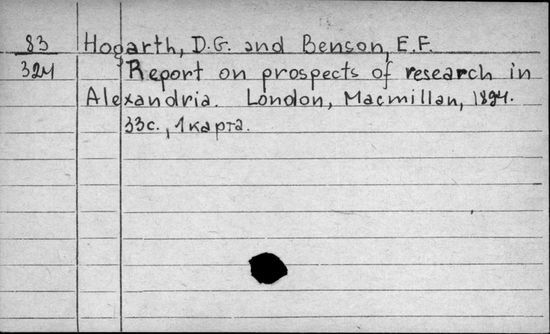 83 Hogarth, D.G. and Benson, E.F.
324 Report on prospects of research in
Alexandria. London, Macmillan, 1894.
33с., 1 карта.